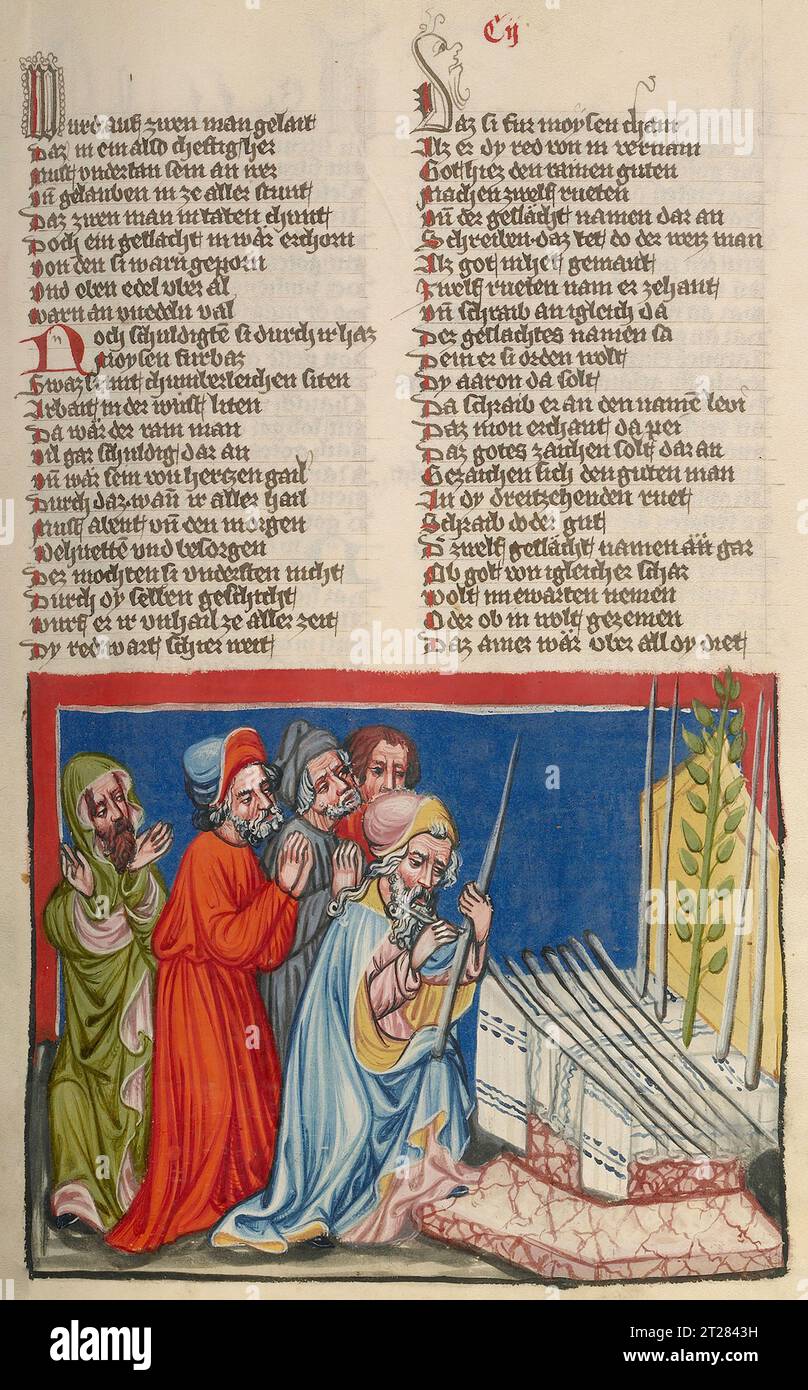 Cij
Wurd auf zwen man gelait
Daz in ein also chreftig her
Must undertan sein an wer
Un gelauben in ze aller stunt
Daz zwen man in taten chunt
Doch ein geslacht in wär erchorn
Von den si warn geporn
Und eben edel uber al
Warn an unedeln val
Noch schuldigtē si durch ir haz
Moysen furbaz
Swaz si mit chumberleichen siten
Arbait in der wust liten
Da wär der rain man
Vil gar schuldig dar an
Uñ wär sein von hertzen gail
Durch daz wañ ir aller hail
Must abent uñ den morgen
Behuettē und besorgen
Der mochten si understen nicht
Durch dy selben geschicht
Wurf er ir unhail ze aller zeit
Dy red wart schier weit
Daz si fur moysen cham
Alz er dy red von in vernam
Got hiez den rainen guten
Machen zwelf rueten
Uñ der geslächt namen dar an
Schreiben daz tet do der weiz man
Alz got in het gemant
Zwelf rueten nam er zehant
Uñ schraib an igleich da
Der geslachtes namen sa
Dem er si orden wolt
Dy aaron da solt
Da schraib er an den namē levi
Daz mon erchant da pei
Daz gotes zaichen solt dar an
Bezaichen sich den guten man
An dy dreitzehenden ruet
Schraib do der gut
D zwelf geslächt namen gar
Ob got von igleicher schar
Wolt im ewarten nemen
Oder ob in wolt gezemen
Daz ainer wär uber all dy diet
alamy
Image ID: 2T2843H
www.alamy.com